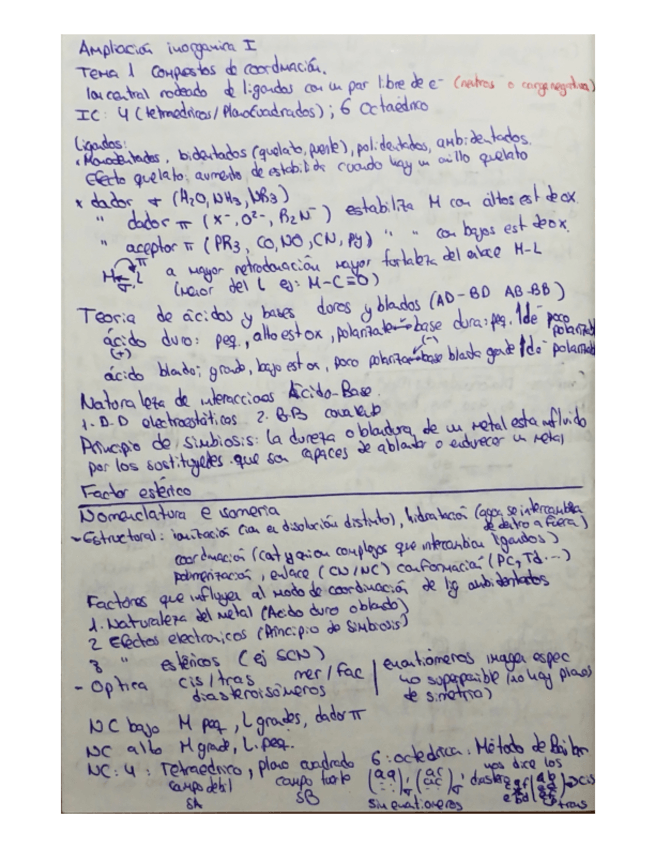 Ampliación inorganica I
Tema 1 Compuestos de coordinación.
Ion central rodeado de ligandos con un par libre de e- (neutros o carga negativa)
IC: 4 (tetraedricos/PlanoCuadrados) ; 6 Octaédrico
Ligandos:
Monodentados, bidentados (quelato, puente), polidentados, ambidentados.
Efecto quelato: aumento de estabilidad cuando hay un anillo quelato
x dador σ (H2O, NH3, NR3)
" dador π (X-, O2-, R2N-) estabiliza M con altos est de ox.
" aceptor π (PR3, CO, NO, CN, Py) " " con bajos est de ox.
M L π σ a mayor retrodonación mayor fortaleza del enlace M-L
(menor del L ej: M-C≡O)
Teoria de ácidos y bases duros y blandos (AD-BD AB-BB)
ácido duro: peq, alto est ox, base dura: peq, poco
(+) (-)
ácido blando; grande, bajo est ox, poco base blanda grande
Naturaleza de interacciones Ácido-Base.
1. D.D electroestáticos 2. B.B covalente
Principio de simbiosis: la dureza o blandura de un metal esta influido
por los sustituyentes que son capaces de ablandar o endurecer un metal
Factor estérico
Nomenclatura e isomeria
- Estructural: ionización (ion en disolución distinto), hidratación (agua se intercambia
de dentro a fuera)
coordinación (cat y anion complejos que intercambian ligandos)
polimerización, enlace (CN/NC) conformación (PC, Td...)
Factores que influyen al modo de coordinación de lig ambidentados
1. Naturaleza del metal (Acido duro o blando)
2 Efectos electronicos (Principio de Simbiosis)
3 " estéricos (ej SCN)
- Optica cis/tras mer/fac enantiómeros imagen espec
diasteroisómeros no superponible (no hay planos
de simetria)
NC bajo M peq, L grades, dador π
NC alto M grade, L. peq.
NC: 4: Tetraédrico, plano cuadrado 6: octédrica: Método de Bailar
campo debil campo fuerte nos dice los
SA SB Sin enantiomeros cis
trans